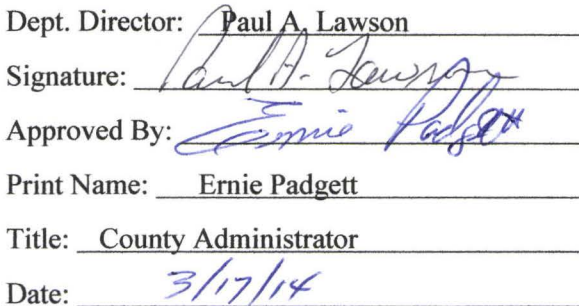 Dept. Director: Paul A. Lawson
Signature: Paul A. Lawson
Approved By: Ernie Padgett
Print Name: Ernie Padgett
Title: County Administrator
Date: 3/17/14